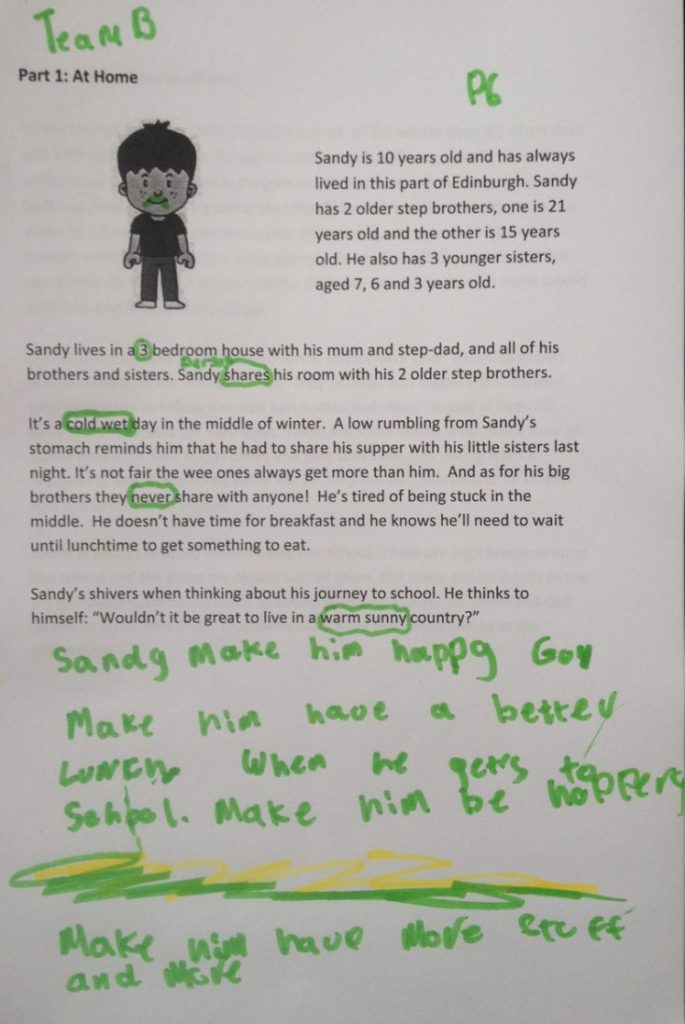 Team B
Part 1: At Home
P6
Sandy is 10 years old and has always
lived in this part of Edinburgh. Sandy
has 2 older step brothers, one is 21
years old and the other is 15 years
old. He also has 3 younger sisters,
aged 7, 6 and 3 years old.
Sandy lives in a 3 bedroom house with his mum and step-dad, and all of his
brothers and sisters. Sandy shares his room with his 2 older step brothers.
It's a cold wet day in the middle of winter. A low rumbling from Sandy's
stomach reminds him that he had to share his supper with his little sisters last
night. It's not fair the wee ones always get more than him. And as for his big
brothers they never share with anyone! He's tired of being stuck in the
middle. He doesn't have time for breakfast and he knows he'll need to wait
until lunchtime to get something to eat.
Sandy's shivers when thinking about his journey to school. He thinks to
himself: "Wouldn't it be great to live in a warm sunny country?"
Sandy make him happy
Make him have a better
Lunch when he gets to
School. Make him be
Make him have more stuff
and more